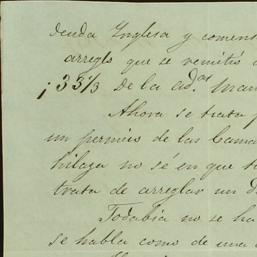 deuda Inglesa y comens
arreglo que se remitió a
¡ 33 1/3 de la ad.ᵒˢ Man
Ahora se trata p
un permiso de las Cama
hilaza no sé en que t
trata de arreglar un d
Todabia no se ha
se habla como de una